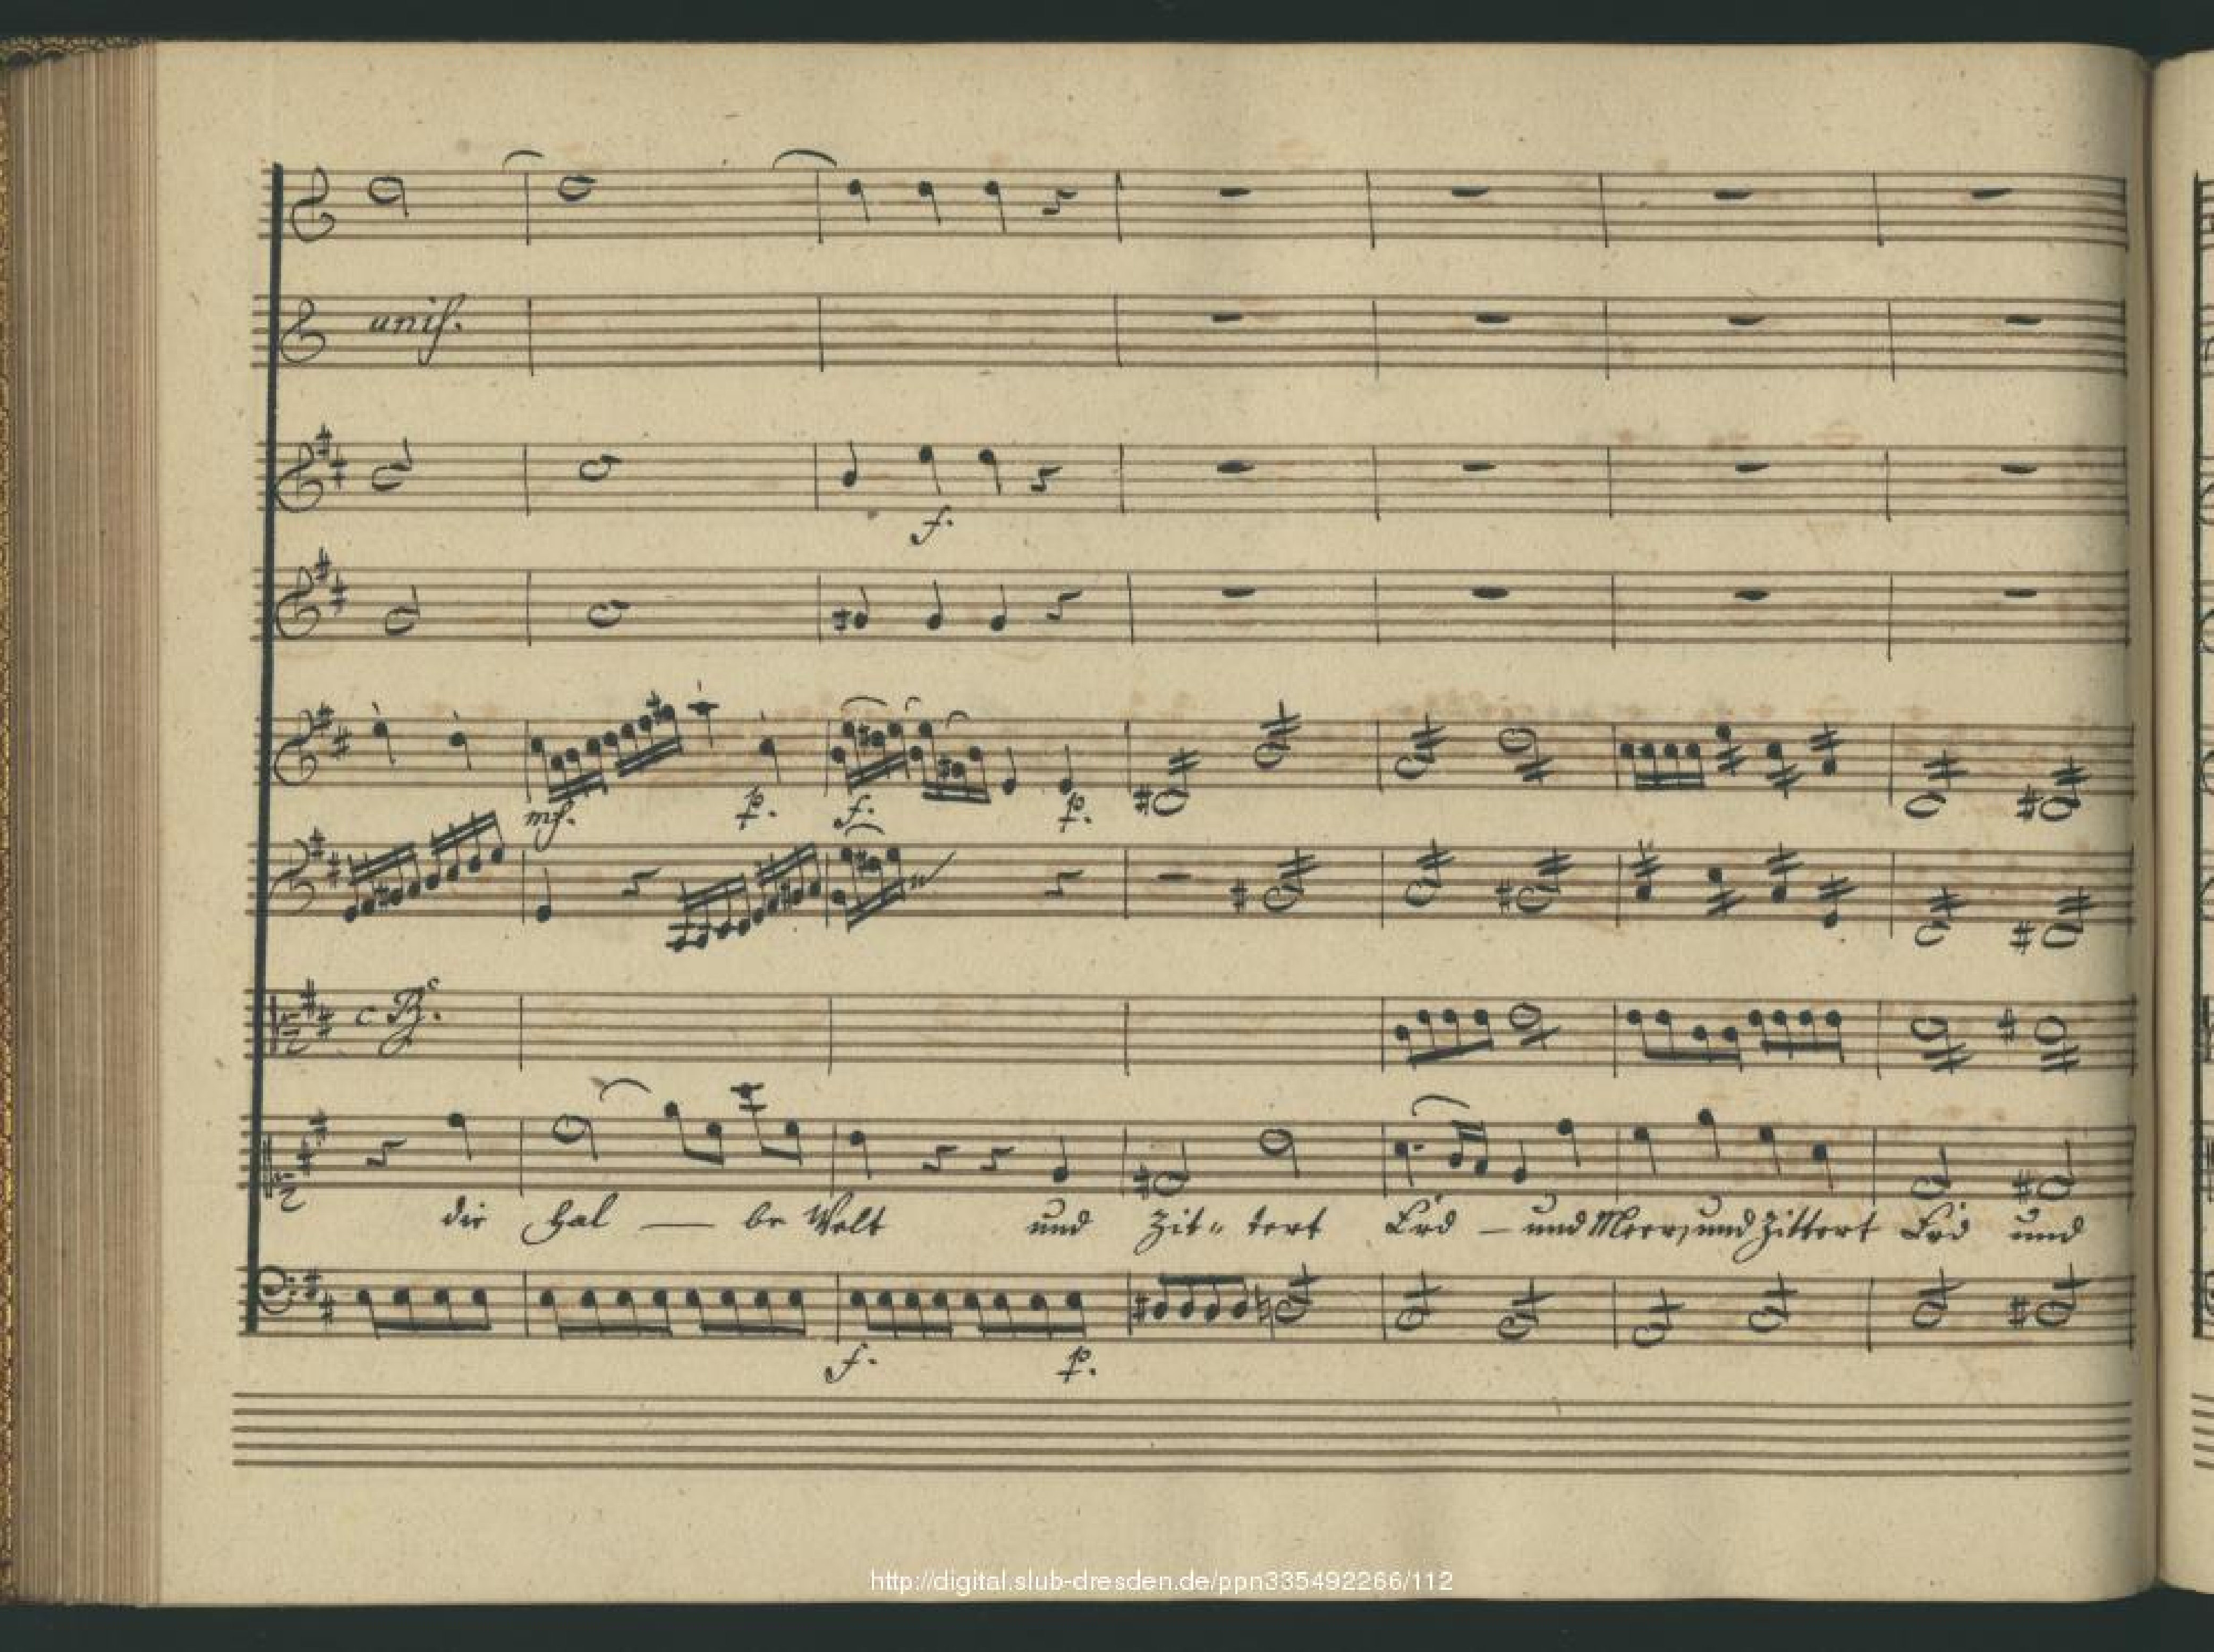 unis.
f.
mf. p. f. p.
c B.
die hal — be Welt und Zit- tert Erd — und Meer, und Zittert Erd und
f. p.
http://digital.slub-dresden.de/ppn335492266/112